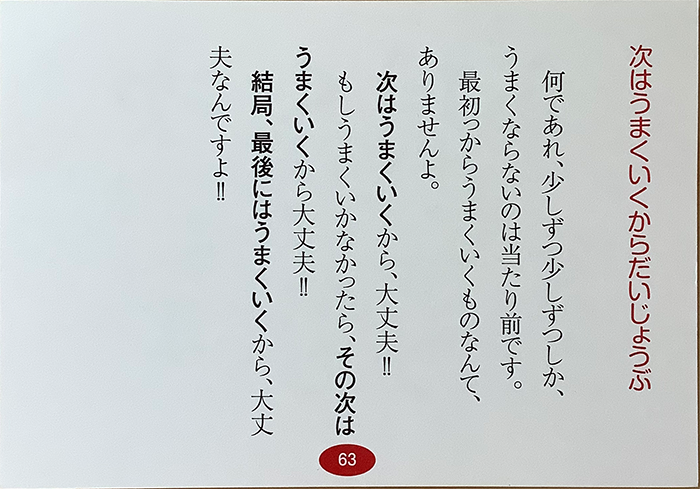 次はうまくいくからだいじょうぶ
何であれ、少しずつ少しずつしか、
うまくならないのは当たり前です。
最初っからうまくいくものなんて、
ありませんよ。
次はうまくいくから、大丈夫!!
もしうまくいかなかったら、その次は
うまくいくから大丈夫!!
結局、最後にはうまくいくから、大丈
夫なんですよ!!
63